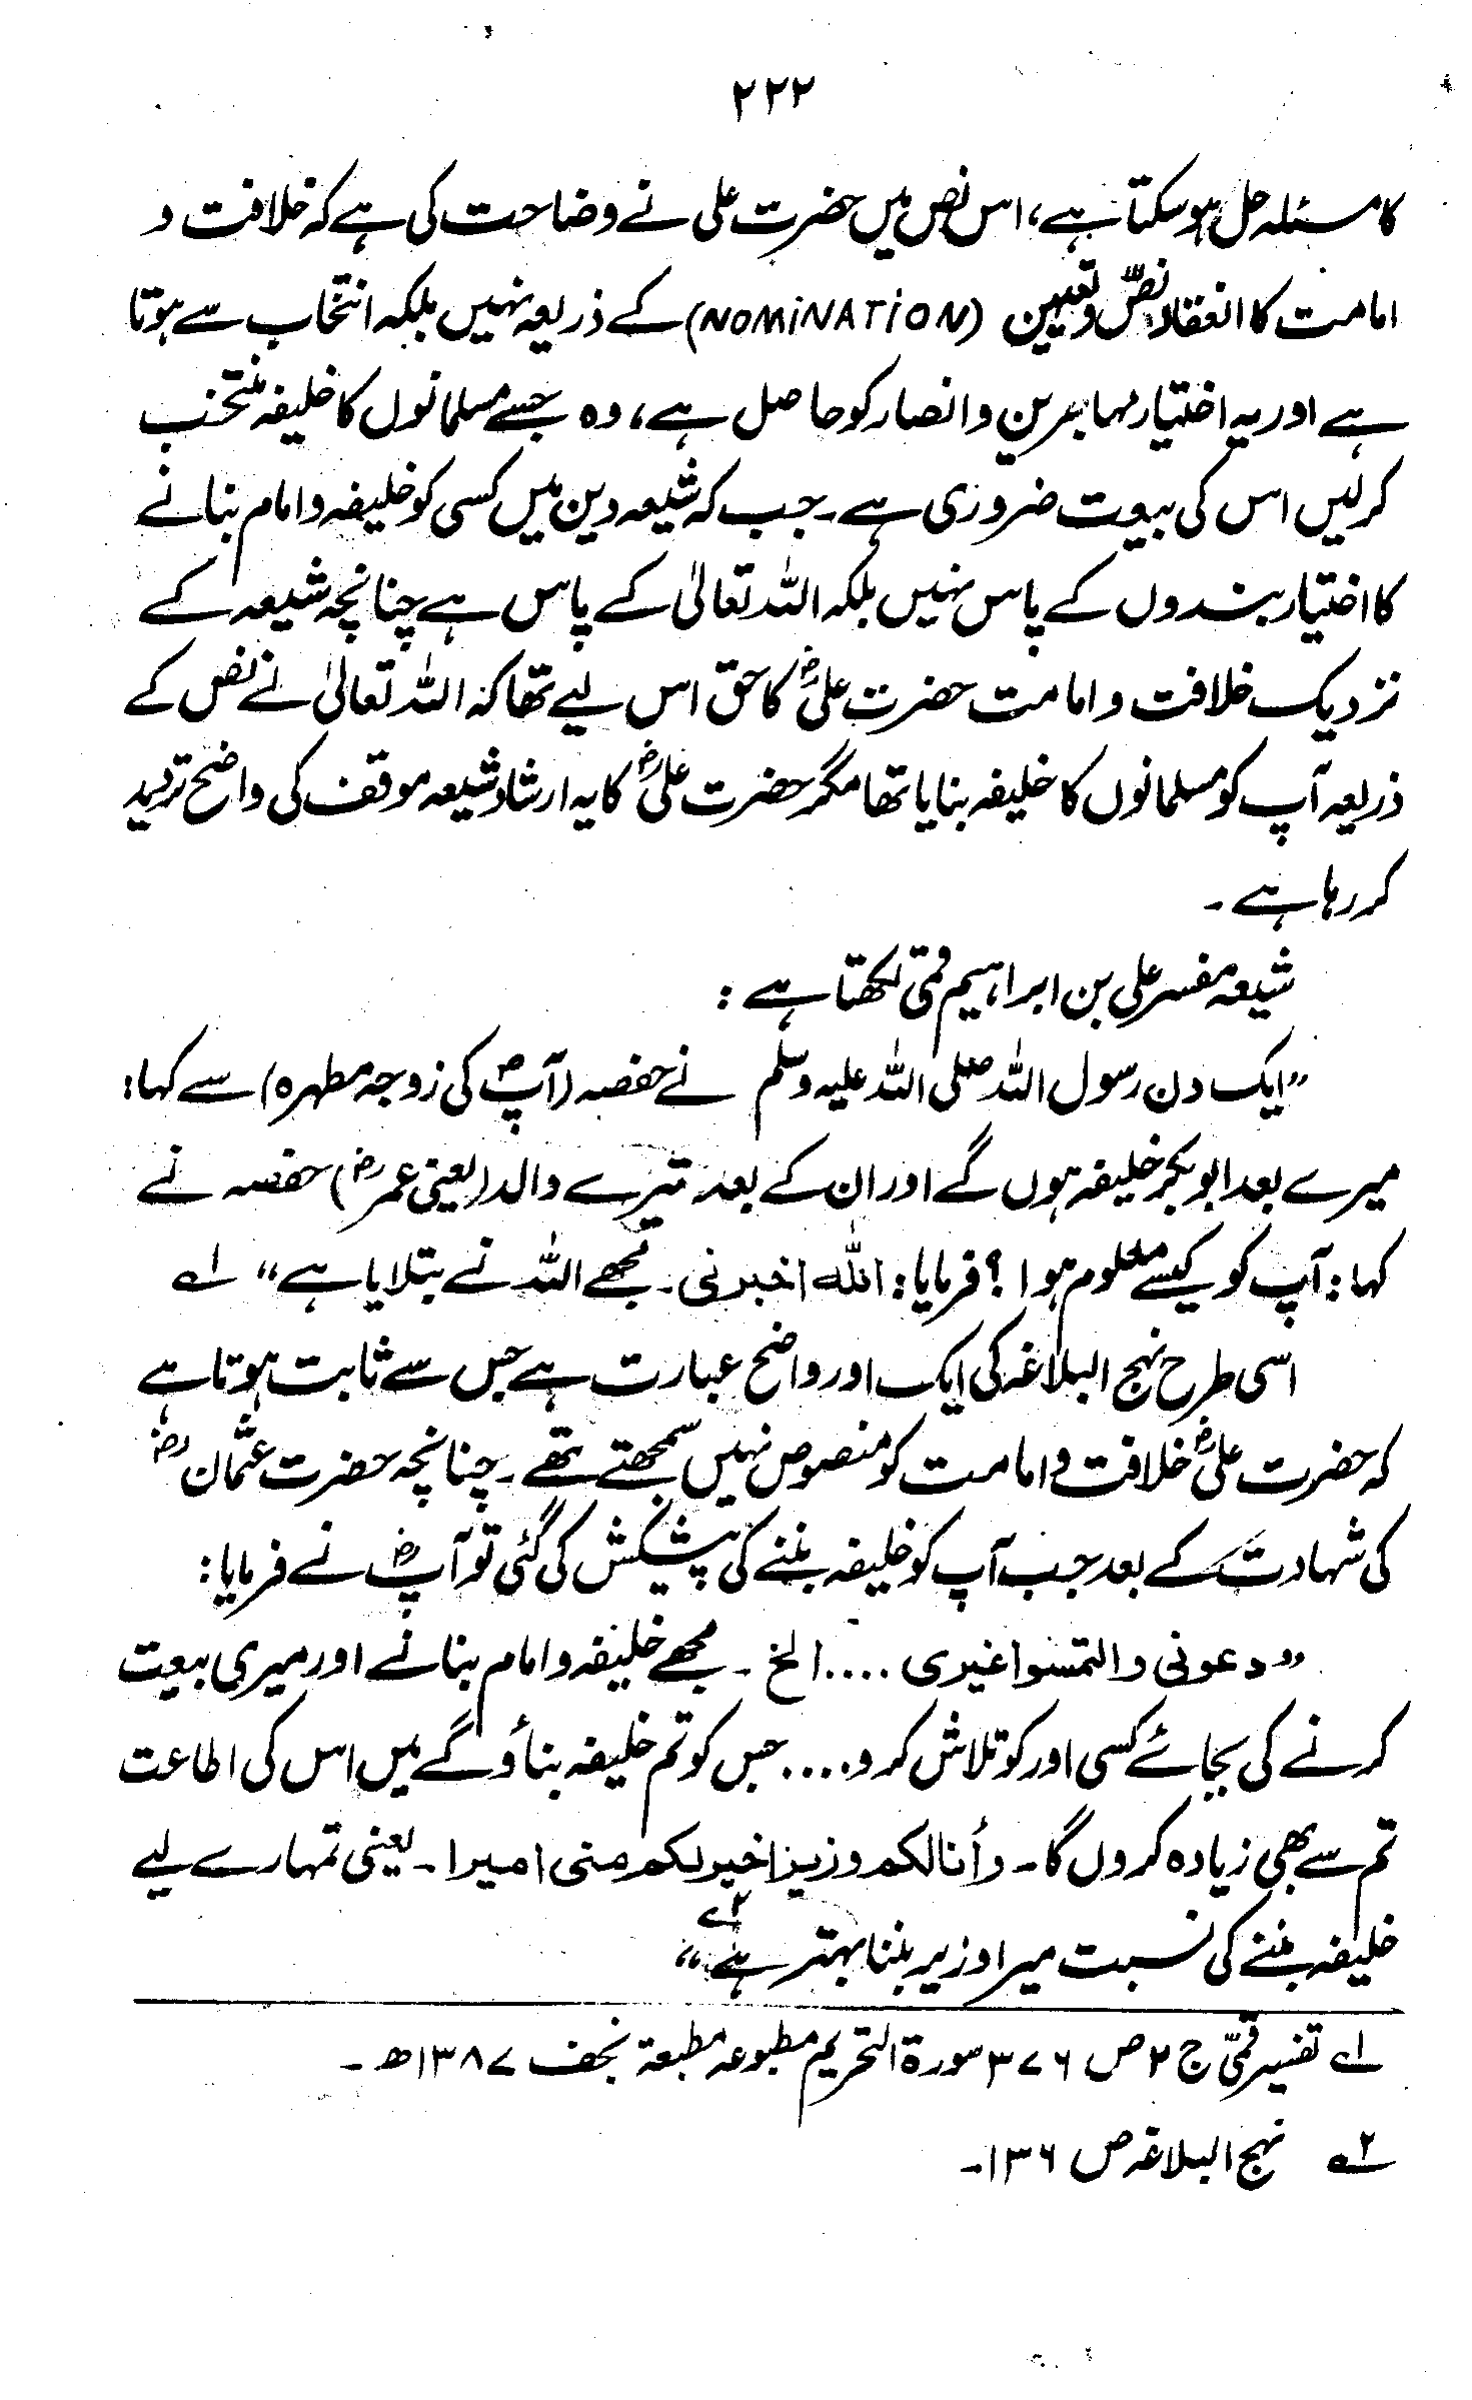 ۲۲۲
کا مسئلہ حل ہو سکتا ہے، اس نص میں حضرت علی نے وضاحت کی ہے کہ خلافت و
امامت کا انعقاد نصّ و تعیین (NOMiNATiON) کے ذریعہ نہیں بلکہ انتخاب سے ہوتا
ہے اور یہ اختیار مہاجرین و انصار کو حاصل ہے، وہ جسے مسلمانوں کا خلیفہ منتخب
کرلیں اس کی بیعت ضروری ہے۔ جب کہ شیعہ دین میں کسی کو خلیفہ و امام بنانے
کا اختیار بندوں کے پاس نہیں بلکہ اللہ تعالیٰ کے پاس ہے چنانچہ شیعہ کے
نزدیک خلافت و امامت حضرت علیؓ کا حق اس لیے تھا کہ اللہ تعالیٰ نے نص کے
ذریعہ آپ کو مسلمانوں کا خلیفہ بنایا تھا مگر حضرت علیؓ کا یہ ارشاد شیعہ موقف کی واضح تردید
کر رہا ہے۔
شیعہ مفسر علی بن ابراہیم قمی لکھتا ہے :
”ایک دن رسول اللہ صلی اللہ علیہ وسلم نے حفصہ (آپؐ کی زوجہ مطہرہ) سے کہا:
میرے بعد ابوبکر خلیفہ ہوں گے اور ان کے بعد تیرے والد (یعنی عمرؓ) حفصہ نے
کہا: آپ کو کیسے معلوم ہوا؟ فرمایا: اللہ اخبرنی۔ مجھے اللہ نے بتلایا ہے“ ۱؎
اسی طرح نہج البلاغہ کی ایک اور واضح عبارت ہے جس سے ثابت ہوتا ہے
کہ حضرت علیؓ خلافت و امامت کو منصوص نہیں سمجھتے تھے۔ چنانچہ حضرت عثمانؓ
کی شہادت کے بعد جب آپ کو خلیفہ بننے کی پیشکش کی گئی تو آپؓ نے فرمایا:
”دعونی والتمسوا غیری .... الخ۔ مجھے خلیفہ و امام بنانے اور میری بیعت
کرنے کی بجائے کسی اور کو تلاش کرو.... جس کو تم خلیفہ بناؤ گے میں اس کی اطاعت
تم سے بھی زیادہ کروں گا۔ وأنا لکم وزیرا خیر لکم منی امیرا۔ یعنی تمہارے لیے
خلیفہ بننے کی نسبت میرا وزیر بننا بہتر ہے ۲؎“
۱؎ تفسیر قمّی ج ۲ ص ۳۷۶ سورۃ التحریم مطبوعہ مطبعۃ نجف ۱۳۸۷ھ۔
۲؎ نہج البلاغہ ص ۱۳۶۔